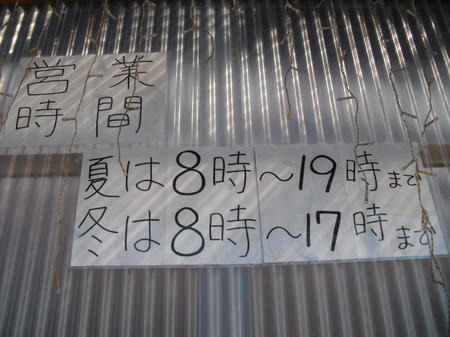 営業
時間
夏は8時～19時まで
冬は8時～17時まで